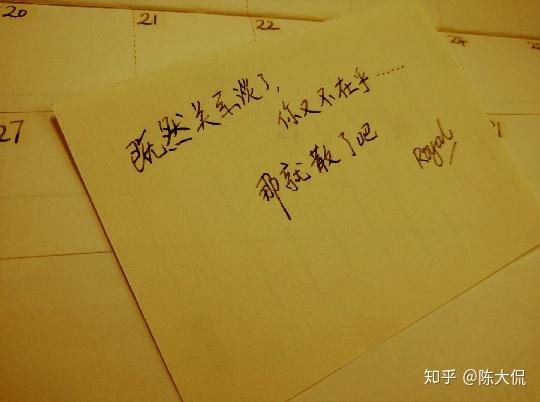 20 21 22 24
27
既然关系淡了，
你又不在乎……
那就散了吧
Royal
知乎 @陈大侃